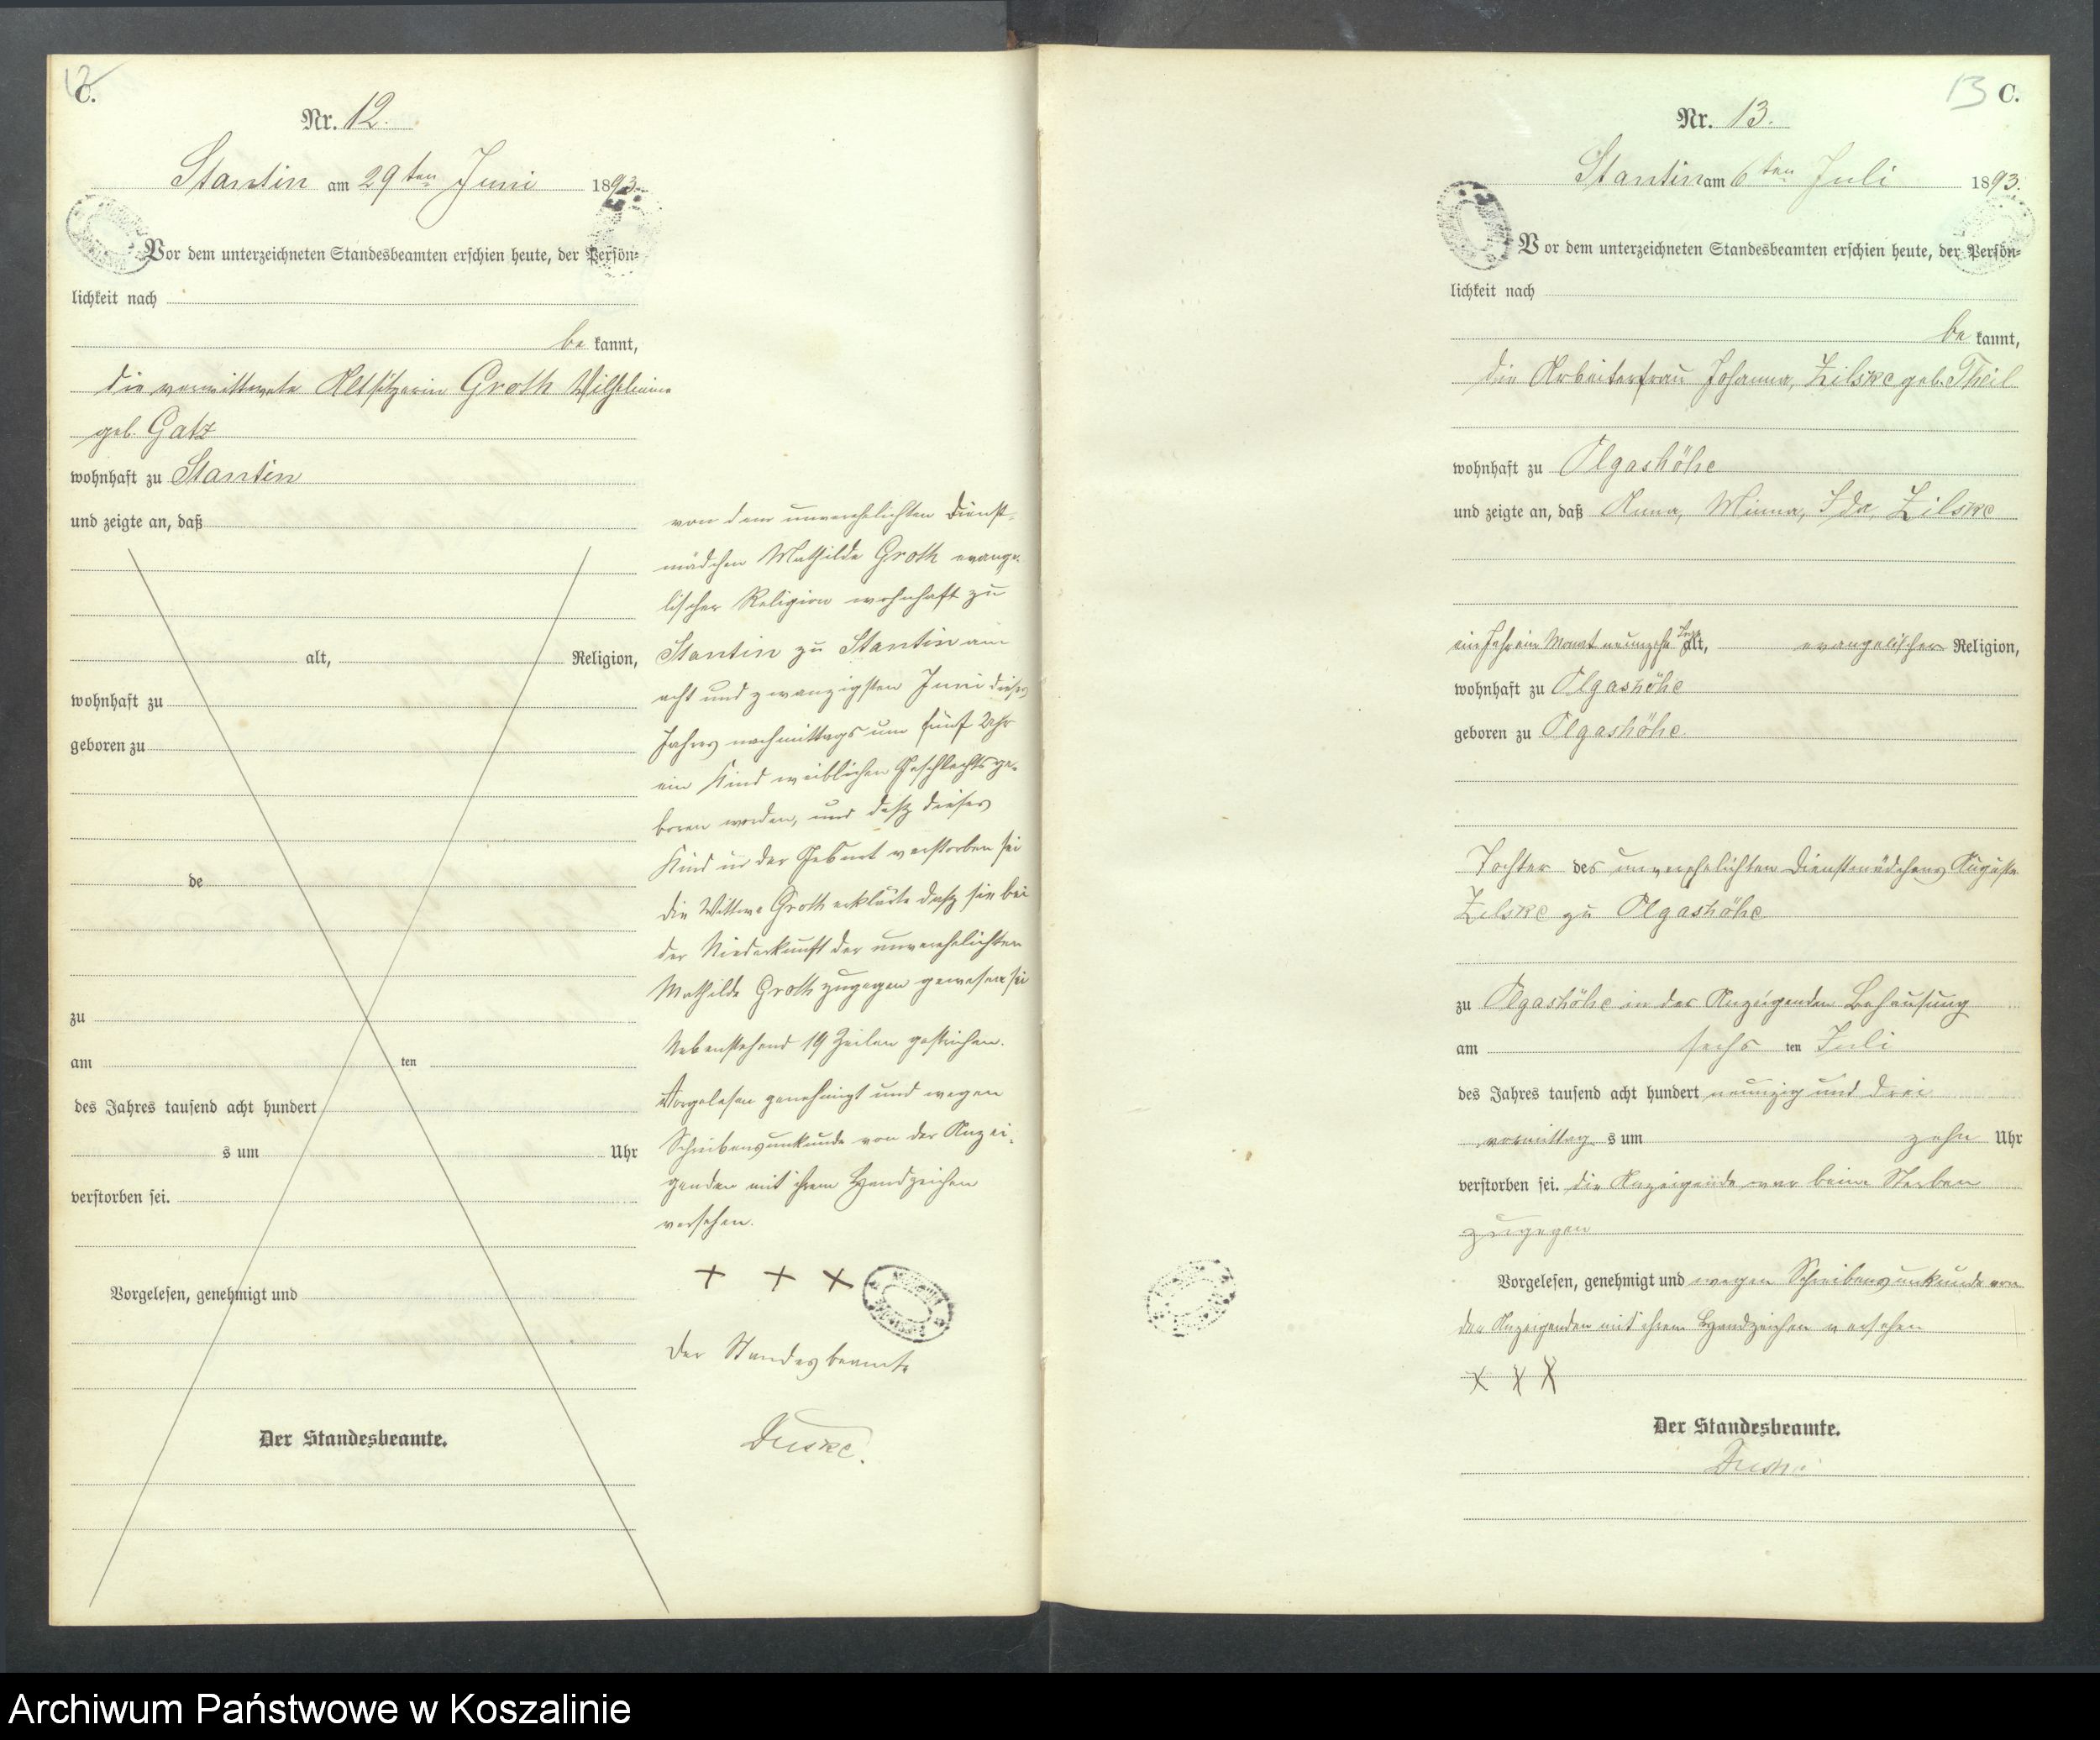 12
C.
Nr. 12.
Stantin am 29ten Juni 1893.
Vor dem unterzeichneten Standesbeamten erschien heute, der Persön=
lichkeit nach
be kannt,
die verwittwete Altsitzerin Groth Wilhelmine
geb. Gatz
wohnhaft zu Stantin
und zeigte an, daß
alt, Religion,
wohnhaft zu
geboren zu
de
zu
am ten
des Jahres tausend acht hundert
s um Uhr
verstorben sei.
Vorgelesen, genehmigt und
Der Standesbeamte.
von dem unverehelichten Dienst-
mädchen Mathilde Groth evange-
lischer Religion wohnhaft zu
Stantin zu Stantin am
acht und zwanzigsten Juni dieses
Jahres nachmittags um fünf Uhr
ein Kind weiblichen Geschlechts ge-
boren worden, und daß dieses
Kind in der Geburt verstorben sei
die Wittwe Groth erklärte daß sie bei
der Niederkunft der unverehelichten
Mathilde Groth zugegen gewesen sei
Nebenstehend 19 Zeilen gestrichen.
Vorgelesen genehmigt und wegen
Schreibensunkunde von der Anzei-
genden mit ihrem Handzeichen
versehen.
+ + +
Der Standesbeamte
Duske.
13 C.
Nr. 13.
Stantin am 6ten Juli 1893.
Vor dem unterzeichneten Standesbeamten erschien heute, der Persön=
lichkeit nach
be kannt,
die Arbeiterfrau Johanna, Zilske geb. Theil
wohnhaft zu Olgashöhe
und zeigte an, daß Anna, Minna, Ida, Zilske
ein Jahr ein Monat neunzehn Tage alt, evangelischer Religion,
wohnhaft zu Olgashöhe
geboren zu Olgashöhe
Tochter des unverehelichten Dienstmädchens Auguste
Zilske zu Olgashöhe
zu Olgashöhe in der Anzeigenden Behausung
am sechs ten Juli
des Jahres tausend acht hundert neunzig und drei
vormittag s um zehn Uhr
verstorben sei. die Anzeigende war beim Sterben
zugegen
Vorgelesen, genehmigt und wegen Schreibensunkunde von
der Anzeigenden mit ihrem Handzeichen versehen
X X X
Der Standesbeamte.
Duske
Archiwum Państwowe w Koszalinie